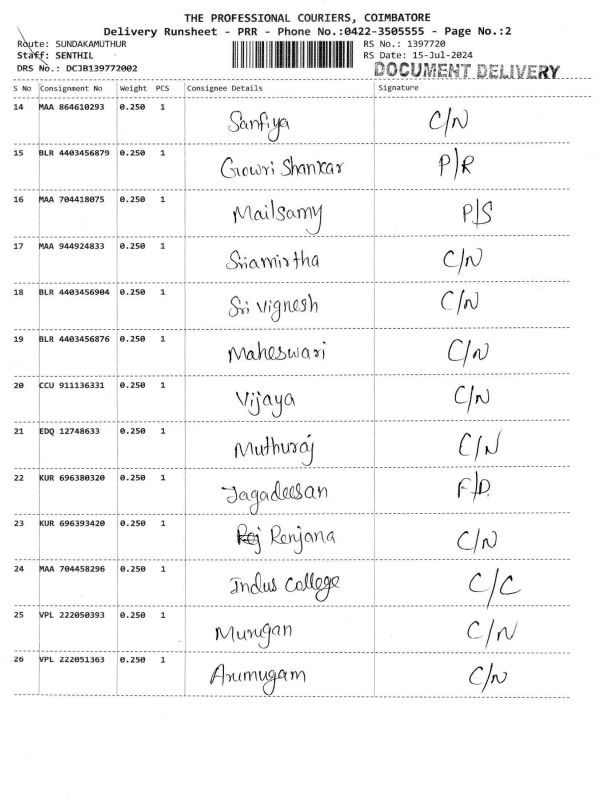 THE PROFESSIONAL COURIERS, COIMBATORE
Delivery Runsheet - PRR - Phone No.:0422-3505555 - Page No.:2
Route: SUNDAKAMUTHUR RS No.: 1397720
Staff: SENTHIL RS Date: 15-Jul-2024
DRS No.: DCJB139772002 DOCUMENT DELIVERY
S No Consignment No Weight PCS Consignee Details Signature
14 MAA 864610293 0.250 1 Sanfiya C/N
15 BLR 4403456879 0.250 1 Gowri Shankar P/R
16 MAA 704418075 0.250 1 Mailsamy P/S
17 MAA 944924833 0.250 1 Sriamirtha C/N
18 BLR 4403456904 0.250 1 Sri Vignesh C/N
19 BLR 4403456876 0.250 1 Maheswari C/N
20 CCU 911136331 0.250 1 Vijaya C/N
21 EDQ 12748633 0.250 1 Muthuraj C/N
22 KUR 696380320 0.250 1 Jagadeesan F/D.
23 KUR 696393420 0.250 1 Renjana C/N
24 MAA 704458296 0.250 1 Indus College C/C
25 VPL 222050393 0.250 1 Murugan C/N
26 VPL 222051363 0.250 1 Arumugam C/N